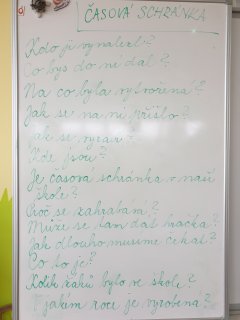 ČASOVÁ SCHRÁNKA
Kdo ji vynalezl?
Co bys do ní dal?
Na co byla vytvořená?
Jak se na ni přišlo?
Jak se vyrábí?
Kde jsou?
Je časová schránka v naší
škole?
Proč se zahrabává?
Může se tam dát hračka?
Jak dlouho musíme čekat?
Co to je?
Kolik žáků bylo ve škole?
V jakém roce je vyrobená?